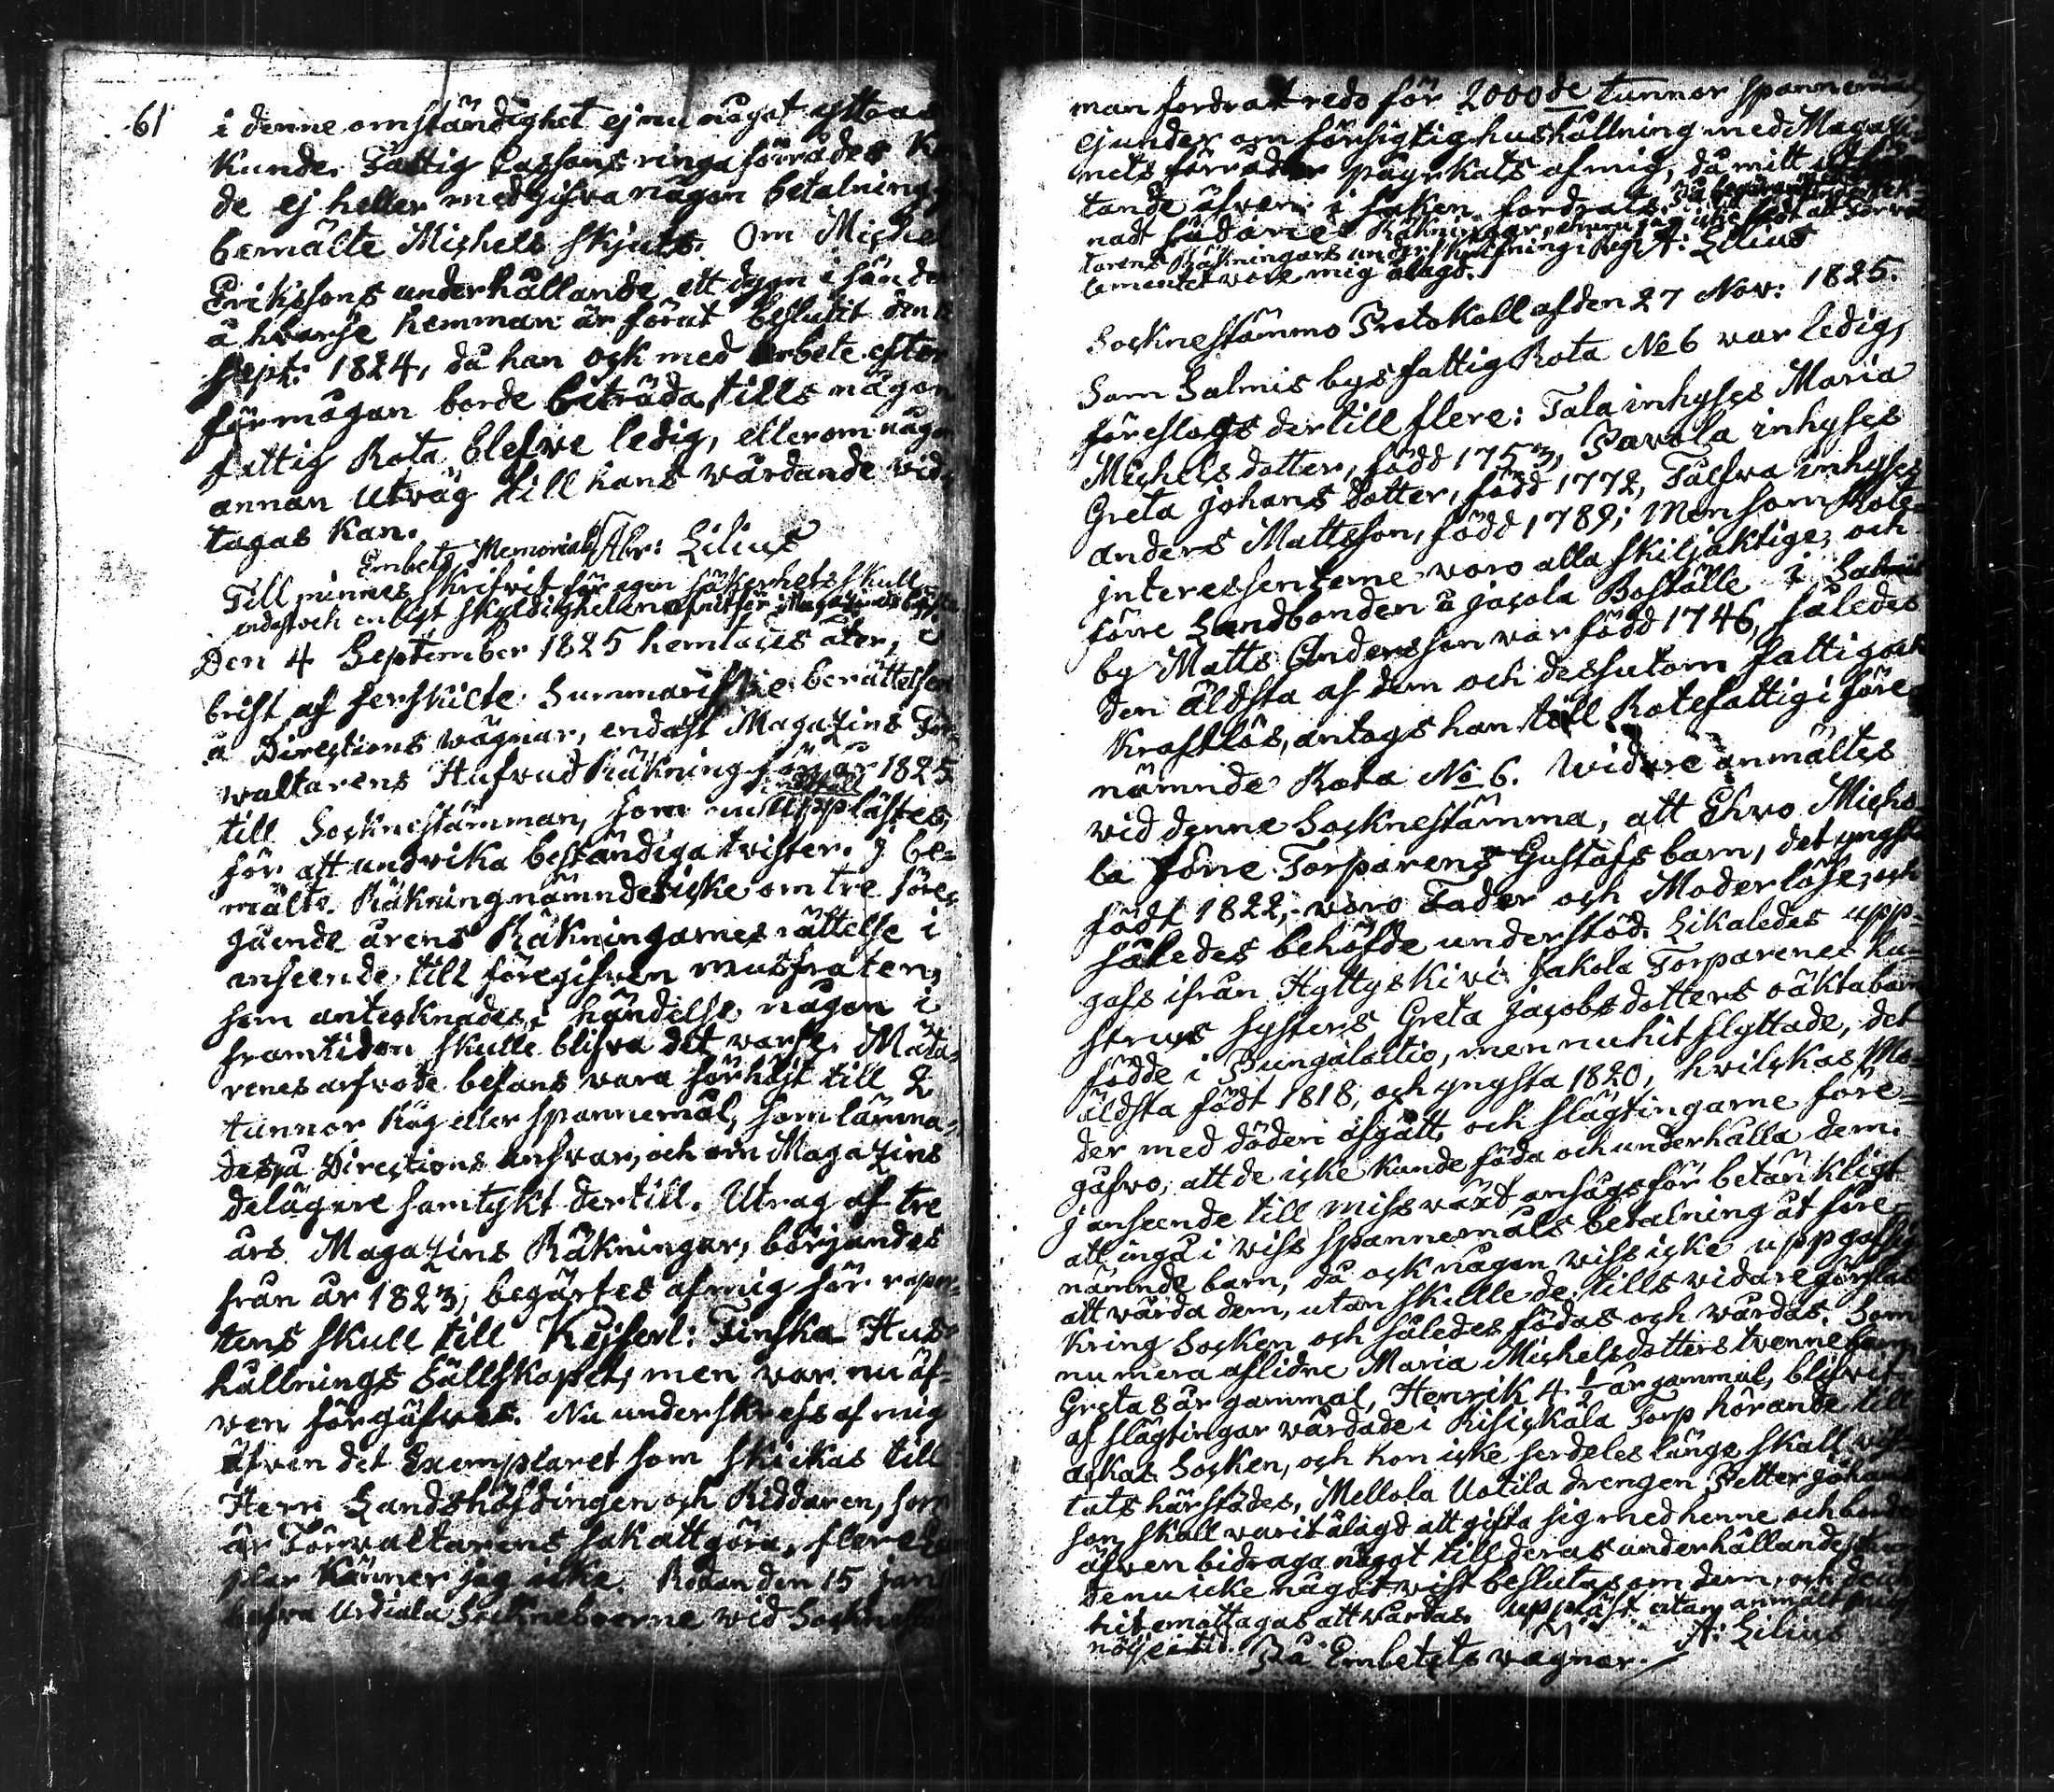 61
i denne omständighet ej nu något yttras
kunde. Fattig Cassans ringa förråder kun
de ej heller medgifva någon betalning
bemälte Michels skjuts. Om Michel
Erikssons underhållande ett dygn i sänder
å hvarje hemman är förut beslutit den
Sept: 1824, då han ock med arbete efter
förmågan borde biträda, tills någon
fattig Rota blefve ledig, eller om någon
annan utväg till hans vårdande vid
tagas kan.
Embets Memorial Abr: Lilius
Till minnes skrifvit för egen säkerhets skull
endast och enligt skyldigheten
Den 4 September 1825 hemtades åter, i
brist af serskilte Summariske berättelser
å Directions wägnar, endast Magazins För-
waltarens Hufvud Räkning för år 1825
till Socknestämman, som upplästes,
för att undvika beständiga tvister. I be-
mälte Räkning nämndes icke om tre före-
gående årens Räkningarnes rättelse i
anseende till föregifven musfraten,
som antecknades, i händelse någon i
framtiden skulle blifva det varse. Mäta-
renes arfvode befans vara förhöjt till 2
tunnor Råg eller spannemål, som lämna-
des på Directions ansvar, och om Magazins
delägare samtykt dertill. Utrag af tre
års Magazins Räkningar, börjandes
från år 1823, begärtes af mig för rapor-
tens skull till Kejserl: Finska Hus-
hållnings Sällskapet, men var nu äf-
ven förgäfves. Nu underskrefs af mig
äfven det Exemplaret som skickas till
Herr Landshöfdingen och Riddaren, som
är Förvaltarens sak att göra, flere
plar känner jag icke. Redan den 15 Jan
hafva Urdiala Sockneboerne wid Sockne
man fordrat redo för 2000de tunnor spannemål
ej under om försigtig hushållning med Magazi-
nets förråder påyrkats af mig, då mitt
tande äfven i socken fordrats.
nadt sådane Räkningar,
torens Räkningars underskrifning A: Lilius
lementet vore mig ålagd.
Sockne stämmo Protokoll af den 27 Nov: 1825.
Som Salmis bys fattig Rota No 6 var ledig,
föreslogs dertill flere: Tala inhyses Maria
Michels dotter, född 1753, Pavola inhyses
Greta Johans dotter, född 1772, Talfva inhyses
Anders Mattsson, född 1789; Men som Rote-
interessenterne voro alla skiljaktige, och
förre Landbonden å Jacola Boställe i Salmis
by Matts Andersson var född 1746, således
den äldsta af dem och dessutom fattig och
kraftlös, antogs han till Rotefattig i före-
nämnde Rota No 6. Widare anmältes
vid denne Socknestämma, att Ehro Micho-
la förre Torparens Gustafs barn, det yngsta
född 1822, voro Fader och Moderlöse, och
således behöfde understöd. Likaledes upp-
gafs ifrån Hyttyskivi Jakola Torparenes hu-
strus systers Greta Jacobsdotters oäkta barn
födde i Pungalaitio, men nu hit flyttade, det
äldsta född 1818, och yngsta 1820, hvilckas Mo-
der med döden afgått, och slägtingarne före-
gåfvo, att de icke kunde föda och underhålla dem.
I anseende till missväxt ansågs för betänkligt
att ingå i viss spannemåls betalning åt före-
nämnde barn, då ock någon viss icke uppgafs
att vårda dem, utan skulle de tills vidare förflyttas
kring Socken och således födas och vårdas. Som
numera aflidne Maria Michelsdotters tvenne barn
Greta år gammal, Henrik 4 ½ år gammal, blifvit
af slägtingar vårdade i Risickala Torp hörande till
Ackas Socken, och hon icke serdeles länge skall vis-
tats härstädes, Mellola Uotila drengen Petter Johan
son skall varit ålagd att gifta sig med henne och borde
äfven bidraga någgt till deras underhållande,
de nu icke något vist beslutas om dem, och
hit emottagas att vårdas. Uppläst utan anmält
nöje. A: Lilius
På Embetets vägnar.